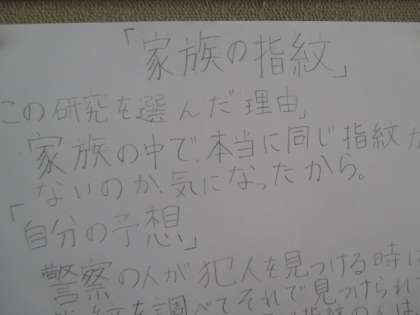 「家族の指紋」
この研究を選んだ理由」
家族の中で、本当に同じ指紋が
ないのか、気になったから。
「自分の予想」
警察の人が犯人を見つける時に
を調べてそれで見つけられ